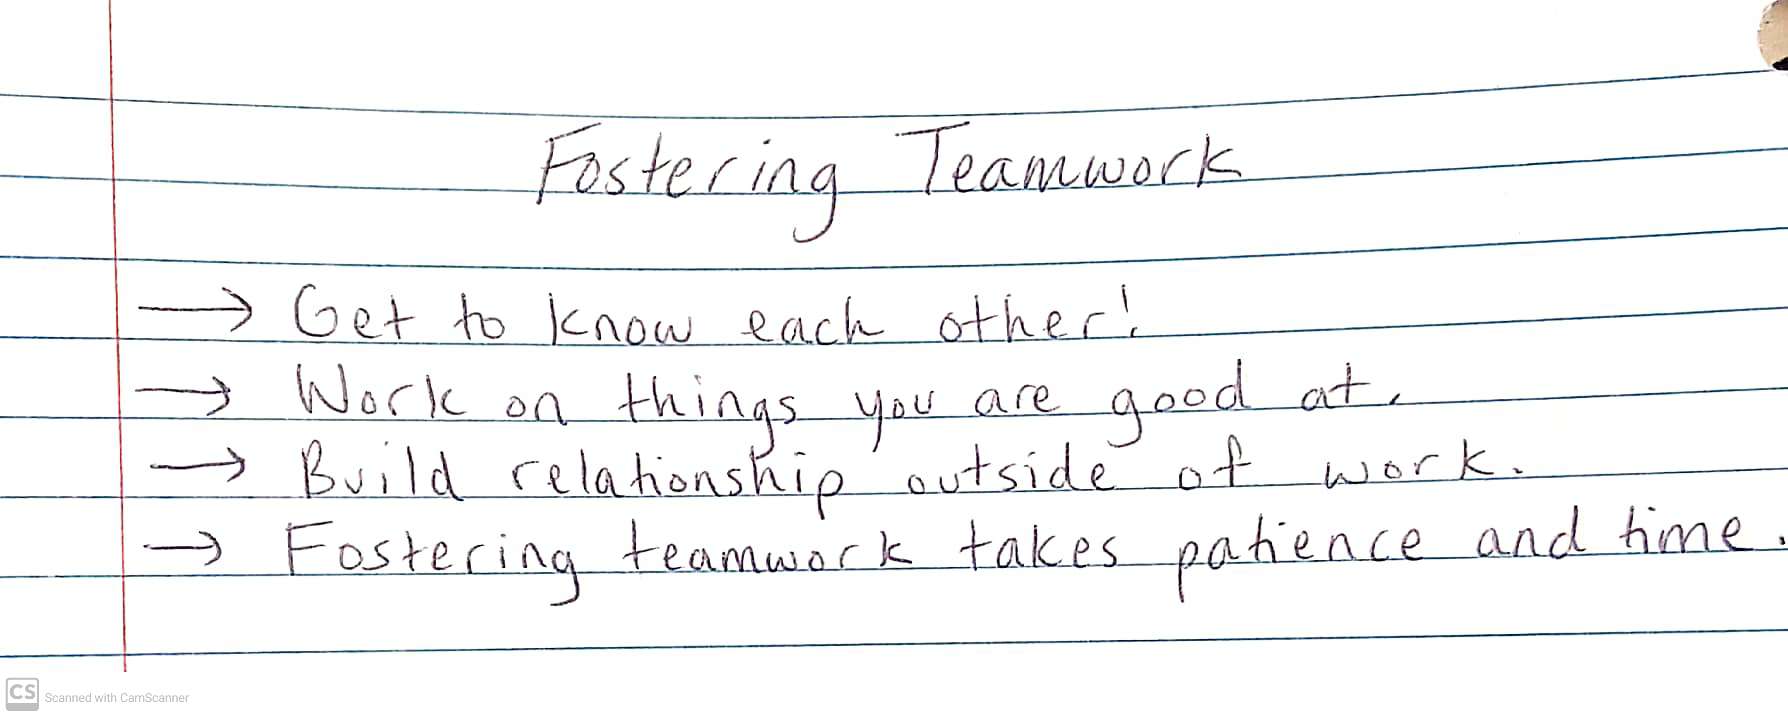 Fostering Teamwork
→ Get to know each other!
→ Work on things you are good at.
→ Build relationship outside of work.
→ Fostering teamwork takes patience and time.
CS Scanned with CamScanner